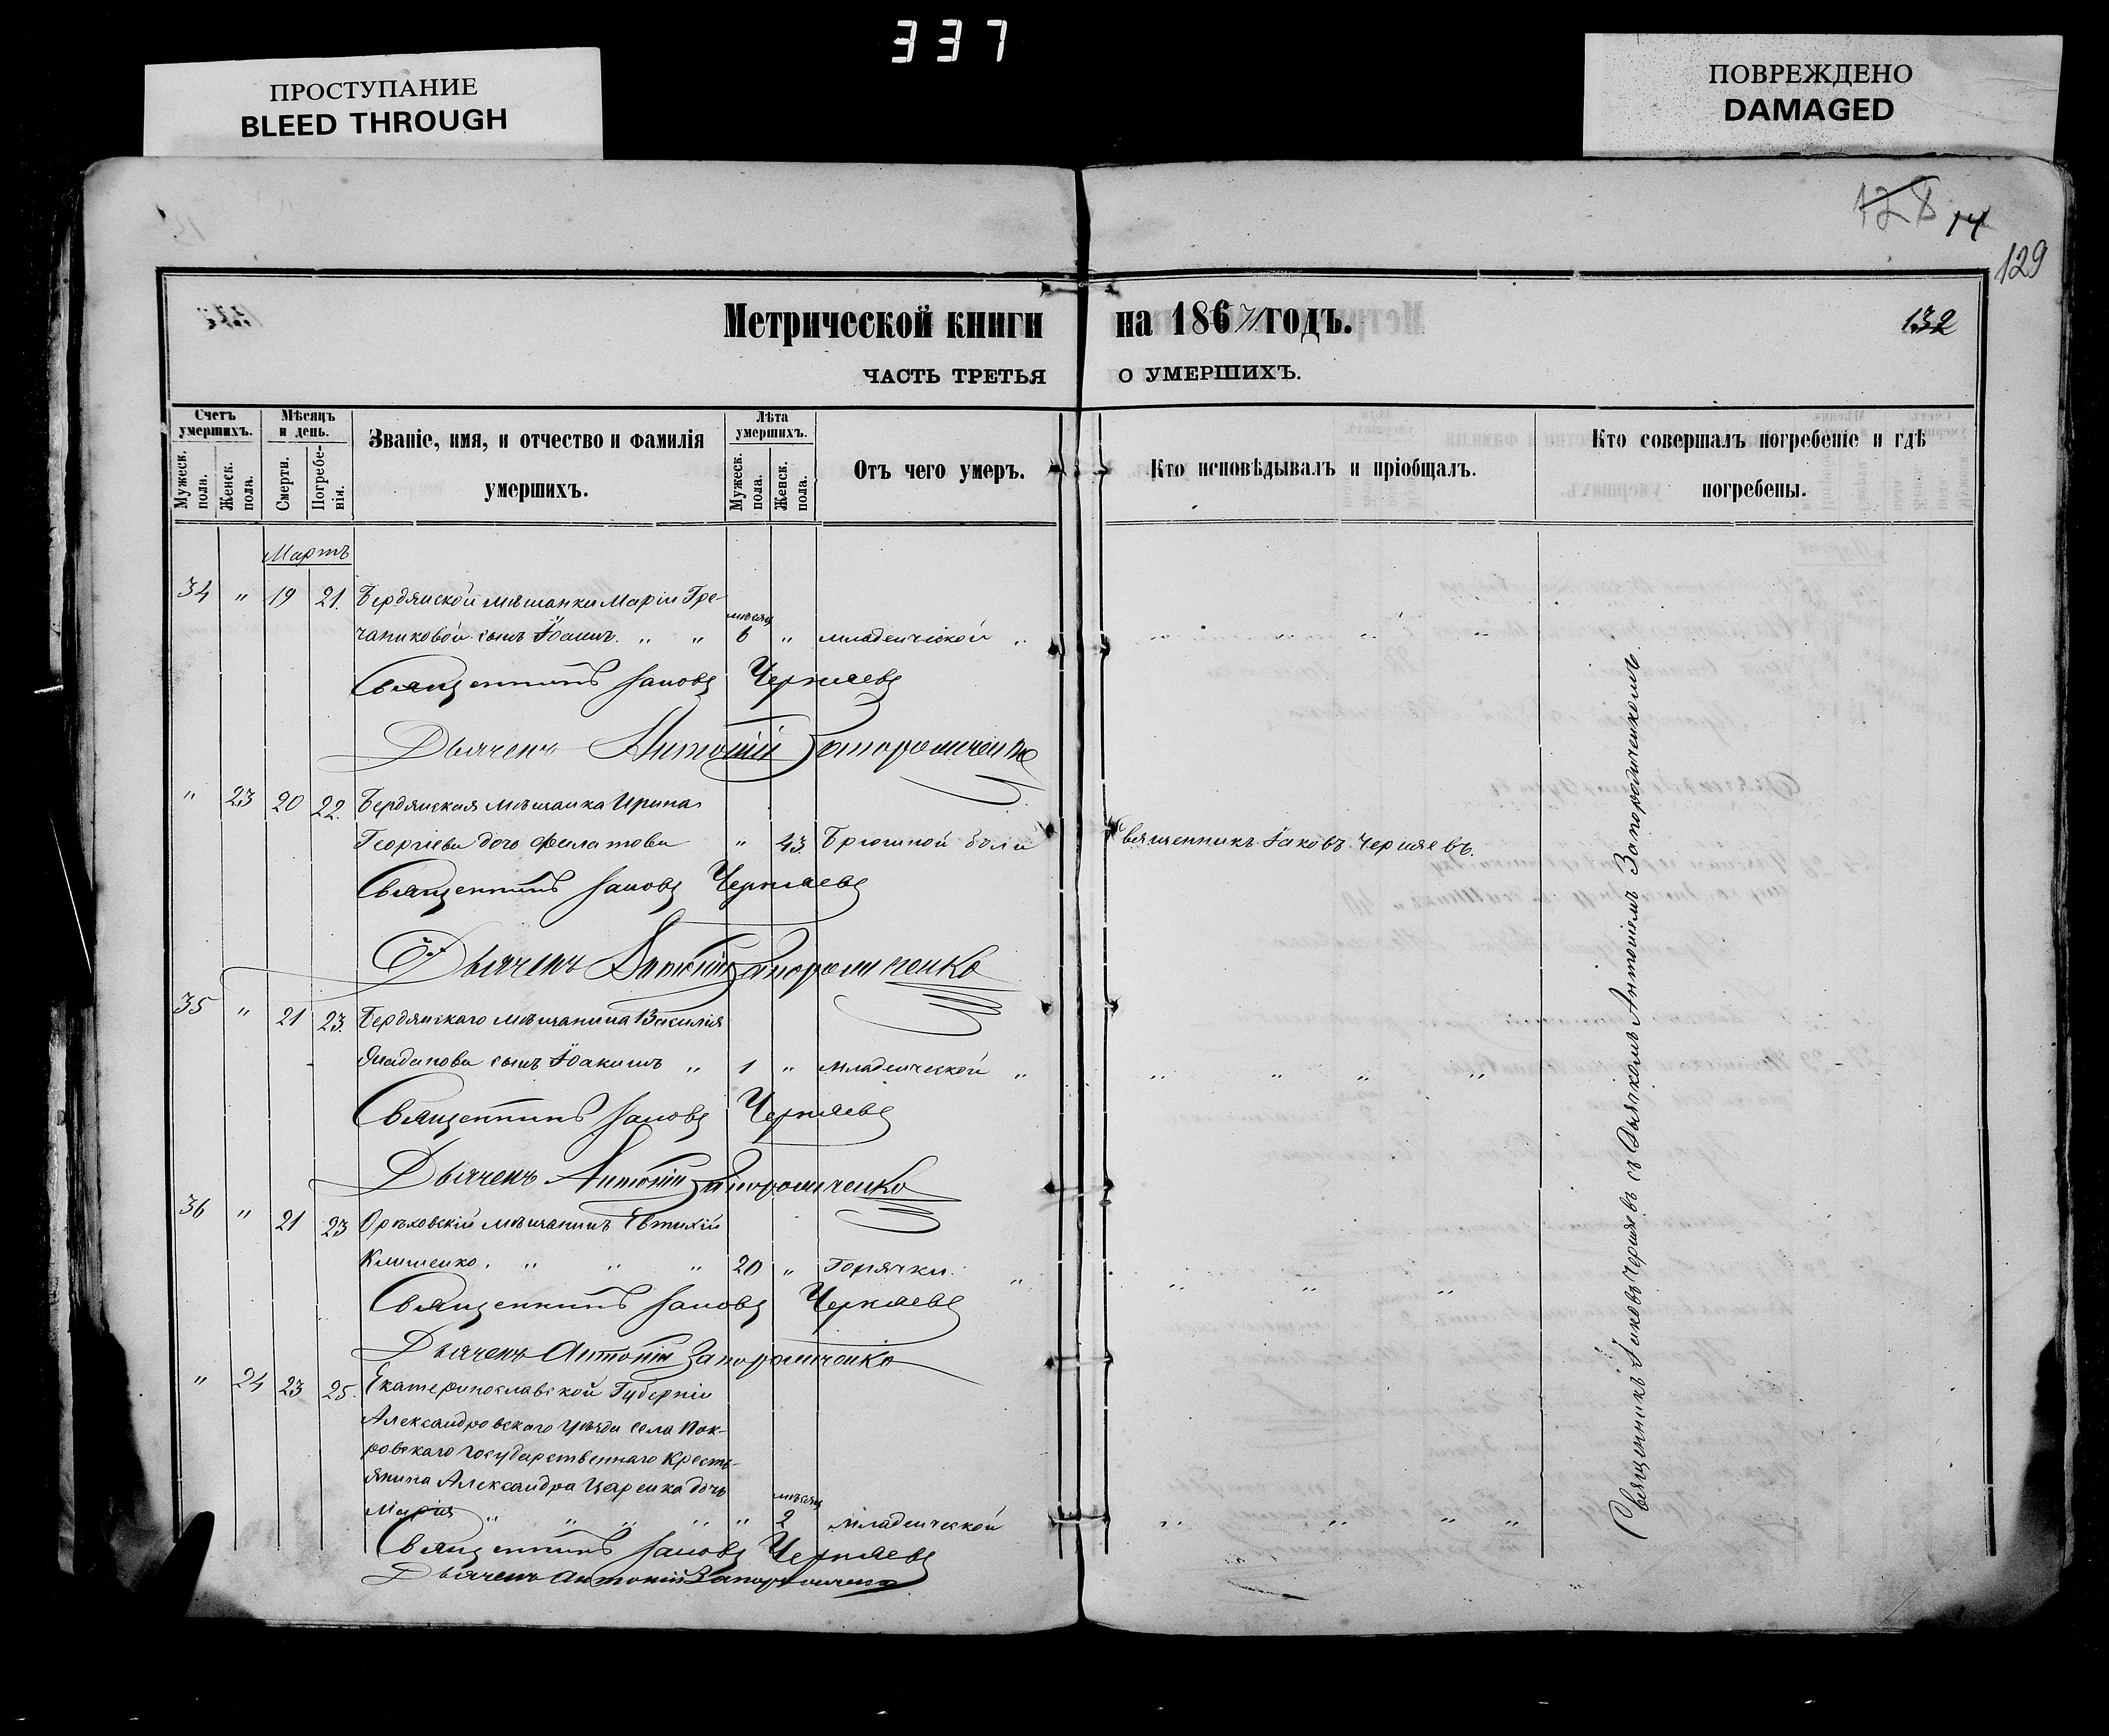 337
ПРОСТУПАНИЕ
BLEED THROUGH
ПОВРЕЖДЕНО
DAMAGED
128 14
129
132
Метрической книги на 1867/1 годъ.
ЧАСТЬ ТРЕТЬЯ О УМЕРШИХЪ.
Счетъ умершихъ.
Мужеск. пола.
Женск. пола.
Мѣсяцъ и день.
Смерти.
Погребенія.
Званіе, имя, и отчество и фамилія умершихъ.
Лѣта умершихъ.
Мужеск. пола.
Женск. пола.
Отъ чего умеръ.
Кто исповѣдывалъ и пріобщалъ.
Кто совершалъ погребеніе и гдѣ погребены.
Мартъ
34 " 19 21. Бердянской мѣщанки Маріи Гре-
чаниковой сынъ Іоаннъ. " " мѣсяц 6 " младенческой "
Священникъ Іаковъ Черняевъ
Дьячекъ Антоній Запорожченко
" 23 20 22. Бердянская мѣщанка Ирина
Георгіева дочь Филатова " 43. Брюшной боли Священникъ Іаковъ Черняевъ.
Священникъ Іаковъ Черняевъ
Дьячекъ Антоній Запорожченко
35 " 21 23. Бердянскаго мѣщанина Василія
сынъ Іоакимъ " 1 " младенческой "
Священникъ Іаковъ Черняевъ
Дьячекъ Антоній Запорожченко
36 " 21 23 Орѣховскій мѣщанинъ Евтихій
Клименко. " " " 20 " Горячки. "
Священникъ Іаковъ Черняевъ
Дьячекъ Антоній Запорожченко
" 24 23 25. Екатеринославской Губерніи
Александровскаго Уѣзда села Пок-
ровскаго Государственнаго Кресть-
янина Александра Царенка дочь
Марія " " " " " мѣсяц 2 младенческой
Священникъ Іаковъ Черняевъ
Дьячекъ Антоній Запорожченко
Священникъ Іаковъ Черняевъ съ Дьячкомъ Антоніемъ Запорожченкомъ.